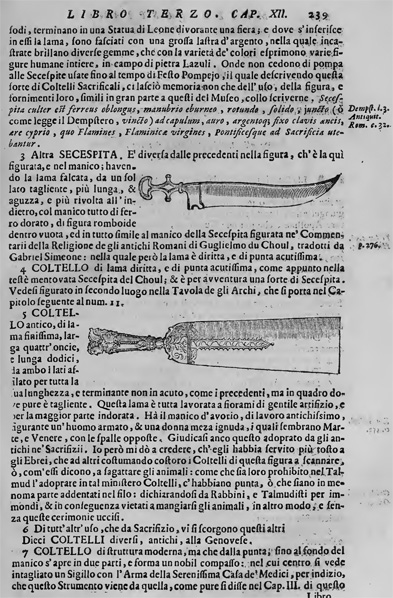 LIBRO TERZO. CAP. XII. 239
sodi, terminano in una Statua di Leone divorante una fiera; e dove s'inserisce
in essi la lama, sono fasciati con una grossa lastra d'argento, nella quale inca-
strate brillano diverse gemme, che con la varietà de' colori esprimono varie fi-
gure humane intiere, in campo di pietra Lazuli. Onde non cedono di pompa
alle Secespite usate fino al tempo di Festo Pompejo, il quale descrivendo questa
sorte di Coltelli Sacrificali, ci lasciò memoria non che dell'uso, della figura, e
fornimenti loro, simili in gran parte a questi del Museo, collo scriverne, Seces-
pita culter est ferreus oblongus, manubrio eburneo, rotundo, solido, juncto (ò
come legge il Dempstero, vincto) ad capulum, auro, argentoq; fixo clavis aneis,
ære cyprio, quo Flamines, Flaminicæ virgines, Pontificesque ad Sacrificia ute-
bantur.
Dempst. l.3.
Antiquit.
Rom. c.32.
3 Altra SECESPITA. E' diversa dalle precedenti nella figura, ch'è la quì
figurata, e nel manico: haven-
do la lama falcata, da un sol
lato tagliente, più lunga, &
aguzza, e più rivolta all'in-
dietro, col manico tutto di fer-
ro dorato, di figura romboide
dentro vuota, ed in tutto simile al manico della Secespita figurata ne' Commen-
tarii della Religione de gli antichi Romani di Guglielmo du Choul, tradotti da
Gabriel Simeone: nella quale però la lama è diritta, e di punta acutissima.
p.276.
4 COLTELLO di lama diritta, e di punta acutissima, come appunto nella
testè mentovata Secespita del Choul; & è per avventura una sorte di Secespita.
Vedesi figurato in secondo luogo nella Tavola de gli Archi, che si porta nel Ca-
pitolo seguente al num. 21.
5 COLTEL-
LO antico, di la-
ma finissima, lar-
ga quattr'oncie,
e lunga dodici,
da ambo i lati af-
filato per tutta la
sua lunghezza, e terminante non in acuto, come i precedenti, ma in quadro do-
ve pure è tagliente. Questa lama è tutta lavorata a fiorami di gentile artifizio, e
per la maggior parte indorata. Hà il manico d'avorio, di lavoro antichissimo,
figurante un'huomo armato, & una donna meza ignuda, i quali sembrano Mar-
te, e Venere, con le spalle opposte. Giudicasi anco questo adoprato da gli an-
tichi ne' Sacrifizii. Io però mi dò a credere, ch'egli habbia servito più tosto a
gli Ebrei, che ad altri costumando costoro i Coltelli di questa figura a scannare,
ò, com'essi dicono, a sagattare gli animali: come che sia loro prohibito nel Tal-
mud l'adoprare in tal ministero Coltelli, c'habbiano punta, ò che siano in me-
noma parte addentati nel filo: dichiarandosi da Rabbini, e Talmudisti per im-
mondi, & in conseguenza vietati a mangiarsi gli animali, in altro modo, e sen-
za queste cerimonie uccisi.
6 Di tutt'altr'uso, che da Sacrifizio, vi si scorgono questi altri
Dieci COLTELLI diversi, antichi, alla Genovese.
7 COLTELLO di struttura moderna, ma che dalla punta, sino al fondo del
manico s'apre in due parti, e forma un nobil compasso: nel cui centro si vede
intagliato un Sigillo con l'Arma della Serenissima Casa de' Medici, per indizio,
che questo Strumento viene da quella, come pure si disse nel Cap. III. di questo
Libro